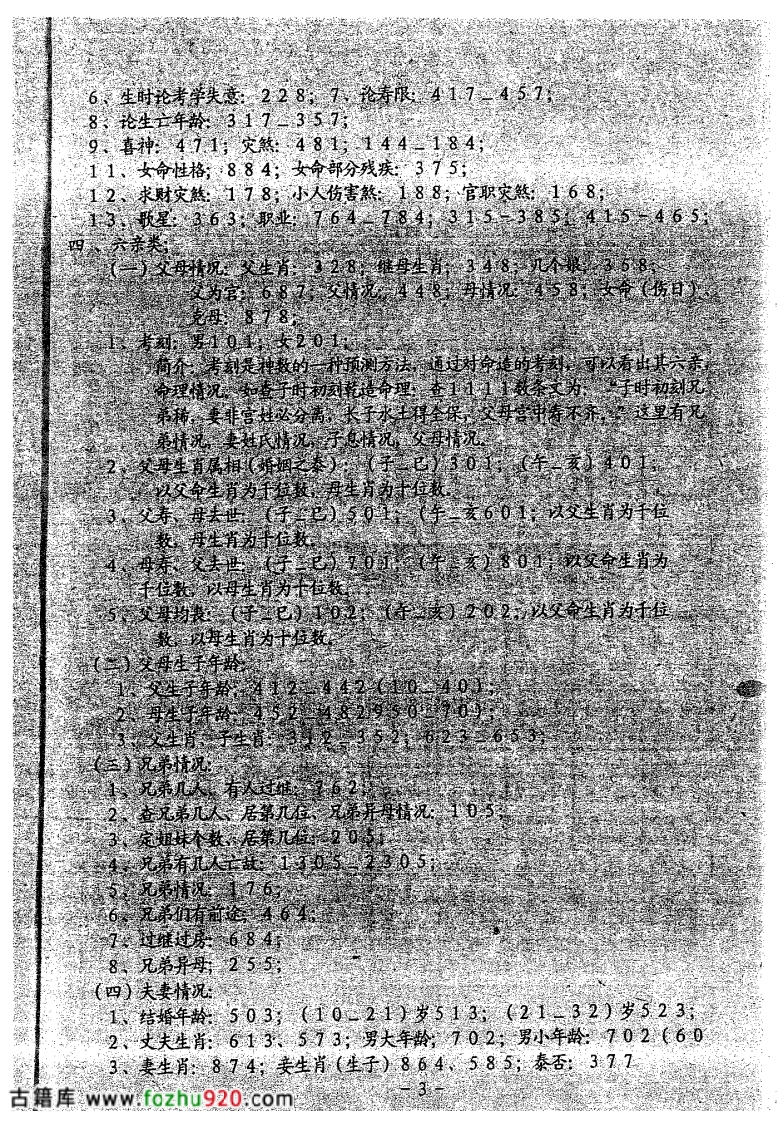 6、生时论考学失意：228；7、论寿限：417_457；
8、论生亡年龄：317_357；
9、喜神：471；灾煞：481；144_184；
11、女命性格；884；女命部分残疾：375；
12、求财灾煞：178；小人伤害煞：188；官职灾煞：168；
13、歌星：363；职业：764_784；315-385；415-465；
四、六亲类；
（一）父母情况：父生肖：328；继母生肖；348；几个娘：358；
父为官：687；父情况：448；母情况：458；女命（伤日）
克母：878；
1、考刻；男101；女201；
简介：考刻是神数的一种预测方法，通过对命造的考刻，可以看出其六亲，
命理情况。如查子时初刻乾造命理：查1111数条文为：“子时初刻兄
弟稀，妻非宫姓必分离，长子水土得全保，父母宫中寿不齐，”这里有兄
弟情况，妻姓氏情况，子息情况，父母情况.
2、父母生肖属相（婚姻之泰）；（子_巳）301；（午_亥）401，
以父命生肖为千位数，母生肖为十位数.
3、父寿、母去世：（子_巳）501；（午_亥601；以父生肖为千位
数，母生肖为十位数.
4、母寿、父去世：（子_巳）701；（午_亥）801；以父命生肖为
千位数，以母生肖为十位数，
5、父母均丧：（子_巳）102；（午_亥）202；以父命生肖为千位
数，以母生肖为十位数，
（二）父母生子年龄；
1、父生子年龄：412_442（10_40）；
2、母生子年龄：452_482950_70）；
3、父生肖、子生肖：312_352；623_653；
（三）兄弟情况；
1、兄弟几人，有人过继：762；
2、查兄弟几人、居第几位、兄弟异母情况：105；
3、定姐妹个数、居第几位：205；
4、兄弟有几人亡故：1305_2305；
5、兄弟情况：176；
6、兄弟们有前途：464；
7、过继过房：684；
8、兄弟异母；255；
（四）夫妻情况：
1、结婚年龄：503；（10_21）岁513；（21_32）岁523；
2、丈夫生肖：613、573；男大年龄；702；男小年龄：702（60
3、妻生肖：874；妾生肖（生子）864、585；泰否：377
－3－
古籍库 www.fozhu920.com